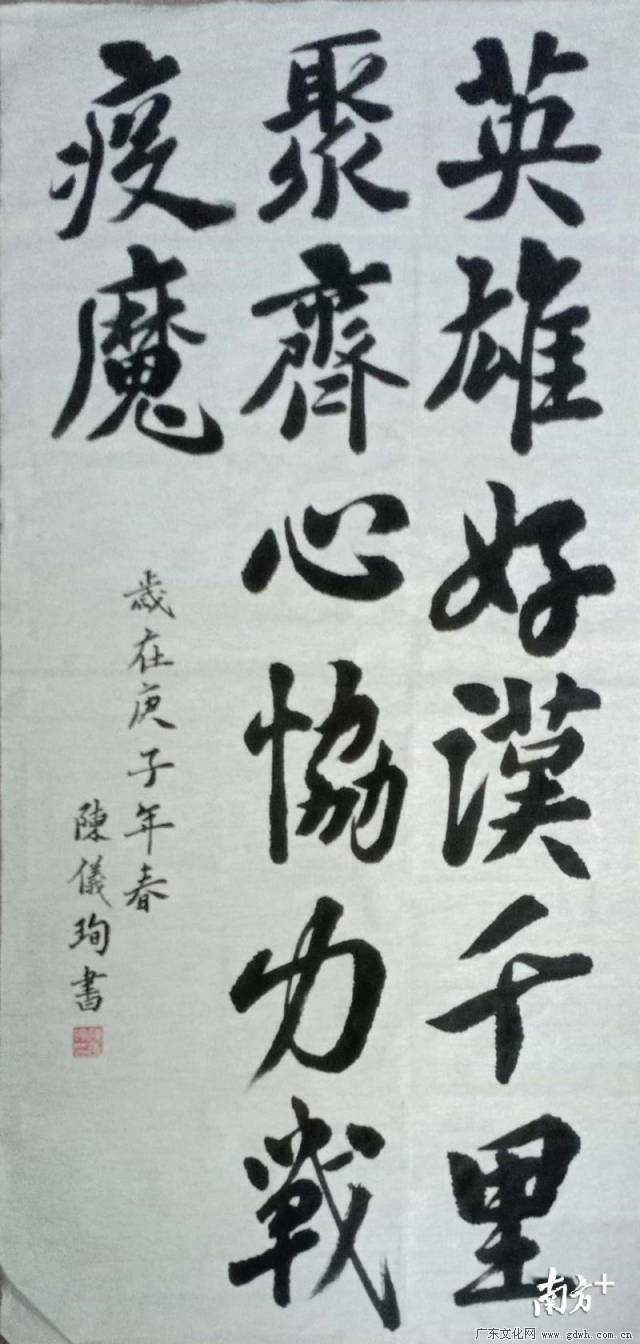 英雄好漢千里
聚齊心協力戰
疫魔
歲在庚子年春
陳儀珣書
南方+
广东文化网 www.gdwh.com.cn